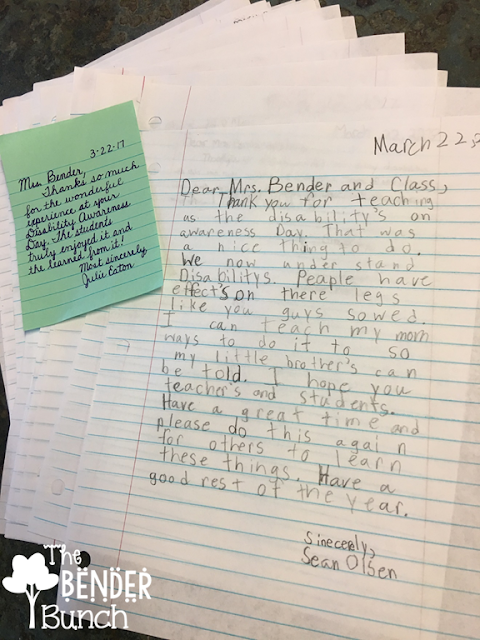 3-22-17
Mrs. Bender,
Thanks so much
for the wonderful
experience at your
Disability Awareness
Day. The students
truly enjoyed it and
the learned from it!
Most sincerely,
Julie Eaton
March 22, 2
Dear, Mrs. Bender and Class,
Thank you for teaching
us the disability's on
awareness Day. That was
a nice thing to do.
We now under stand
Disabilitys. Peaple have
effect's on there legs
like you guys sowed.
I can teach my mom
ways to do it to so
my little brother's can
be told. I hope you
teacher's and students.
Have a great time and
please do this again
for others to learn
these things. Have a
good rest of the year.
Sinecerely,
Sean Olsen
The
BENDER
Bunch